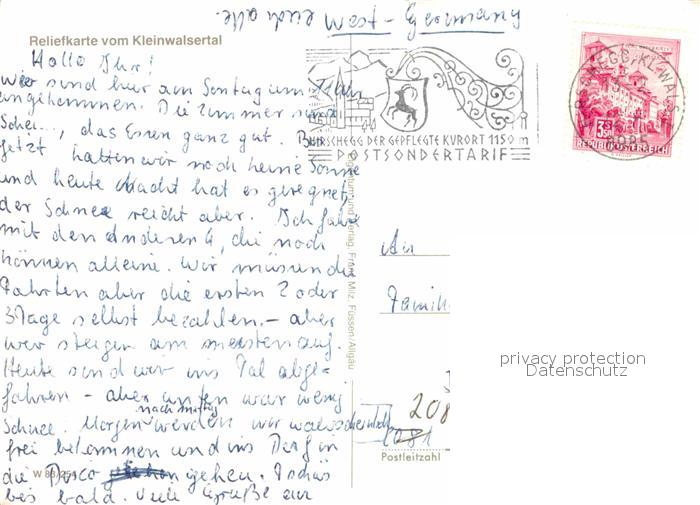 euch alle. West - Germany
Reliefkarte vom Kleinwalsertal
Hallo Ihr!
wir sind hier am Sontag um 11 Uhr
angekommen. Die Zimmer sind
Schei..., das Essen ganz gut. Bis
jetzt hatten wir noch keine Sonne
und heute Nacht hat es geregnet,
der Schnee reicht aber. Ich fahre
mit den anderen 4, die noch
können alleine. Wir müssen die
Fahrten aber die ersten 2 oder
3 Tage selbst bezahlen. - aber
wir steigen am meisten auf.
Heute sind wir ins Tal abge-
fahren - aber unten war wenig
Schnee. Morgen nachmittag werden wir warscheinlich
frei bekommen und ins Dorf in
die Disco gehen. Tschüs
bis bald. Viele Grüße an
W 83/254
Verlag Franz Milz, Füssen/Allgäu
HIRSCHEGG DER GEPFLEGTE KURORT 1150 m
POSTSONDERTARIF
3.50
REPUBLIK ÖSTERREICH
An
Famili
208
2081
Postleitzahl
privacy protection
Datenschutz